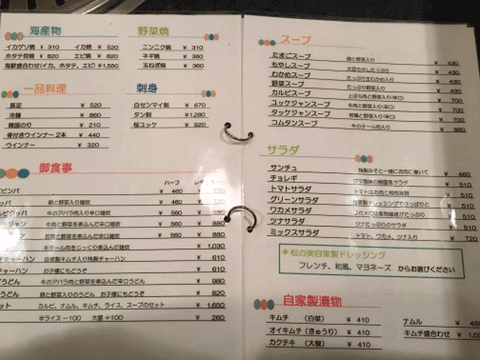 海産物
イカゲソ焼 ¥ 310 イカ焼 ¥ 520
ホタテ貝焼 ¥ 620 エビ焼 ¥ 820
海鮮盛合わせ(イカ、ホタテ、エビ) ¥1,550
野菜焼
ニンニク焼 ¥ 310
ネギ焼 ¥ 360
玉ねぎ焼 ¥ 360
一品料理
豚足 ¥ 520
冷麺 ¥ 860
韓国のり ¥ 210
骨付きウインナー2本 ¥ 440
ウインナー ¥ 320
刺身
白センマイ刺 ¥ 670
タン刺 ¥ 1,280
桜ユッケ ¥ 920
御食事
ハーフ
ビビンバ ¥ 460
卵と野菜入り雑炊 ¥ 460
牛のアバラ肉入り辛口雑炊 ¥ 560
牛肉と野菜を煮込んだ辛口雑炊 ¥ 560 ¥ 880
¥ 560 ¥ 880
牛テール肉をじっくり煮込んだ雑炊 ¥ 1,030
チャーハン 自家製キムチ入り特製チャーハン ¥ 610
チャーハン お子様にもどうぞ ¥ 610
うどん 牛のアバラ肉と野菜を煮込んだ辛口うどん ¥ 820
うどん 卵と野菜入りのうどん お子様にもどうぞ
セット カルビ、ナムル、キムチ、ライス、スープのセット ¥ 1,650
半ライス -100 大盛 +100 ¥ 260
スープ
たまごスープ 卵と野菜入り ¥ 430
もやしスープ ¥ 430
わかめスープ ¥ 430
野菜スープ たっぷり野菜入り ¥ 430
カルビスープ
ユッケジャンスープ 牛肉と野菜入り(辛口)
タッケジャンスープ
コムタンスープ 牛のテール肉入り ¥ 880
サラダ
サンチュ 特製みそと一緒にお肉に巻いて ¥ 460
チョレギ ¥ 510
トマトサラダ ¥ 510
グリーンサラダ ¥ 510
ワカメサラダ ¥ 510
ツナサラダ ¥ 510
ミックスサラダ トマト、ワカメ、ツナ入り ¥ 720
*松の実自家製ドレッシング
フレンチ、和風、マヨネーズ からお選びください
自家製漬物
キムチ (白菜) ¥ 410 ナムル
オイキムチ(きゅうり) ¥ 410 キムチ盛合わせ
カクテキ (大根) ¥ 410